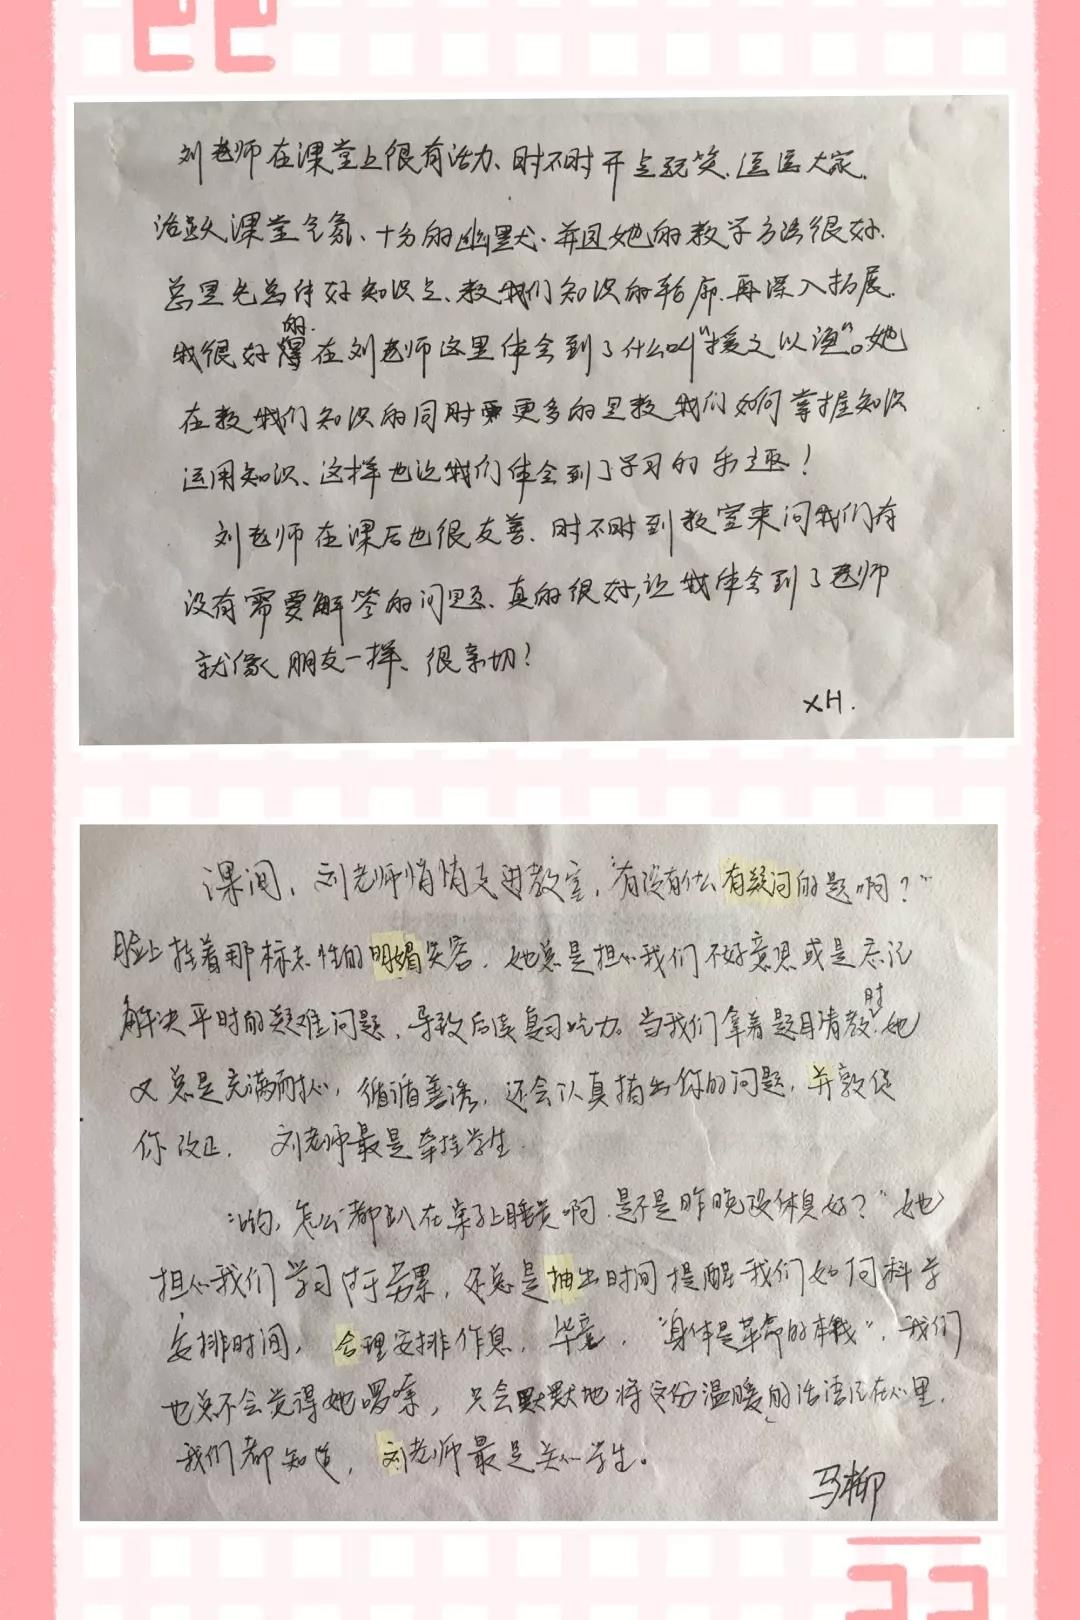 刘老师在课堂上很有活力、时不时开点玩笑.逗逗大家.
活跃课堂气氛、十分的幽默.并且她的教学方法很好.
总是先总结好知识点、教我们知识的轮廓.再深入拓展.
我很好的在刘老师这里体会到了什么叫"授之以渔"。她
在教我们知识的同时更多的是教我们如何掌握知识
运用知识、这样也让我们体会到了学习的乐趣！
刘老师在课后也很友善、时不时到教室来问我们有
没有需要解答的问题、真的很好,让我体会到了老师
就像朋友一样、很亲切！
XH.
课间，刘老师悄悄走进教室，"有没有什么有疑问的题啊？"
脸上挂着那标志性的明媚笑容，她总是担心我们不好意思或是忘记
解决平时的疑难问题，导致后续复习吃力。当我们拿着题目请教时,她
又总是充满耐心，循循善诱，还会认真指出你的问题，并敦促
你改正. 刘老师最是牵挂学生.
怎么都趴在桌子上睡觉啊.是不是昨晚没休息好？"她
担心我们学习过于劳累，还总是抽出时间提醒我们如何科学
安排时间，合理安排作息，毕竟，"身体是革命的本钱"，我们
也总不会觉得她啰嗦，只会默默地将这份温暖的话语记在心里.
我们都知道，刘老师最是关心学生。
马柳